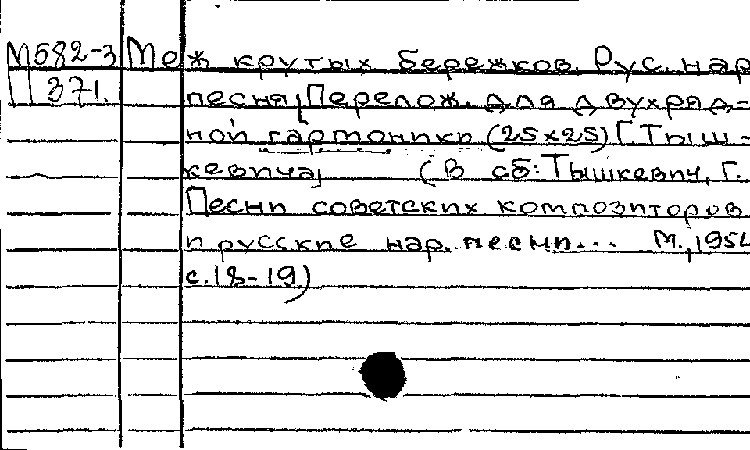 М582-3 Меж крутых бережков. Рус. нар
371. песня[Перелож. для двухряд-
ной гармоники (25х25) Г. Тыш-
кевича] (В сб: Тышкевич, Г.
Песни советских композиторов
и русские нар. песни... М., 195
с. 18-19)